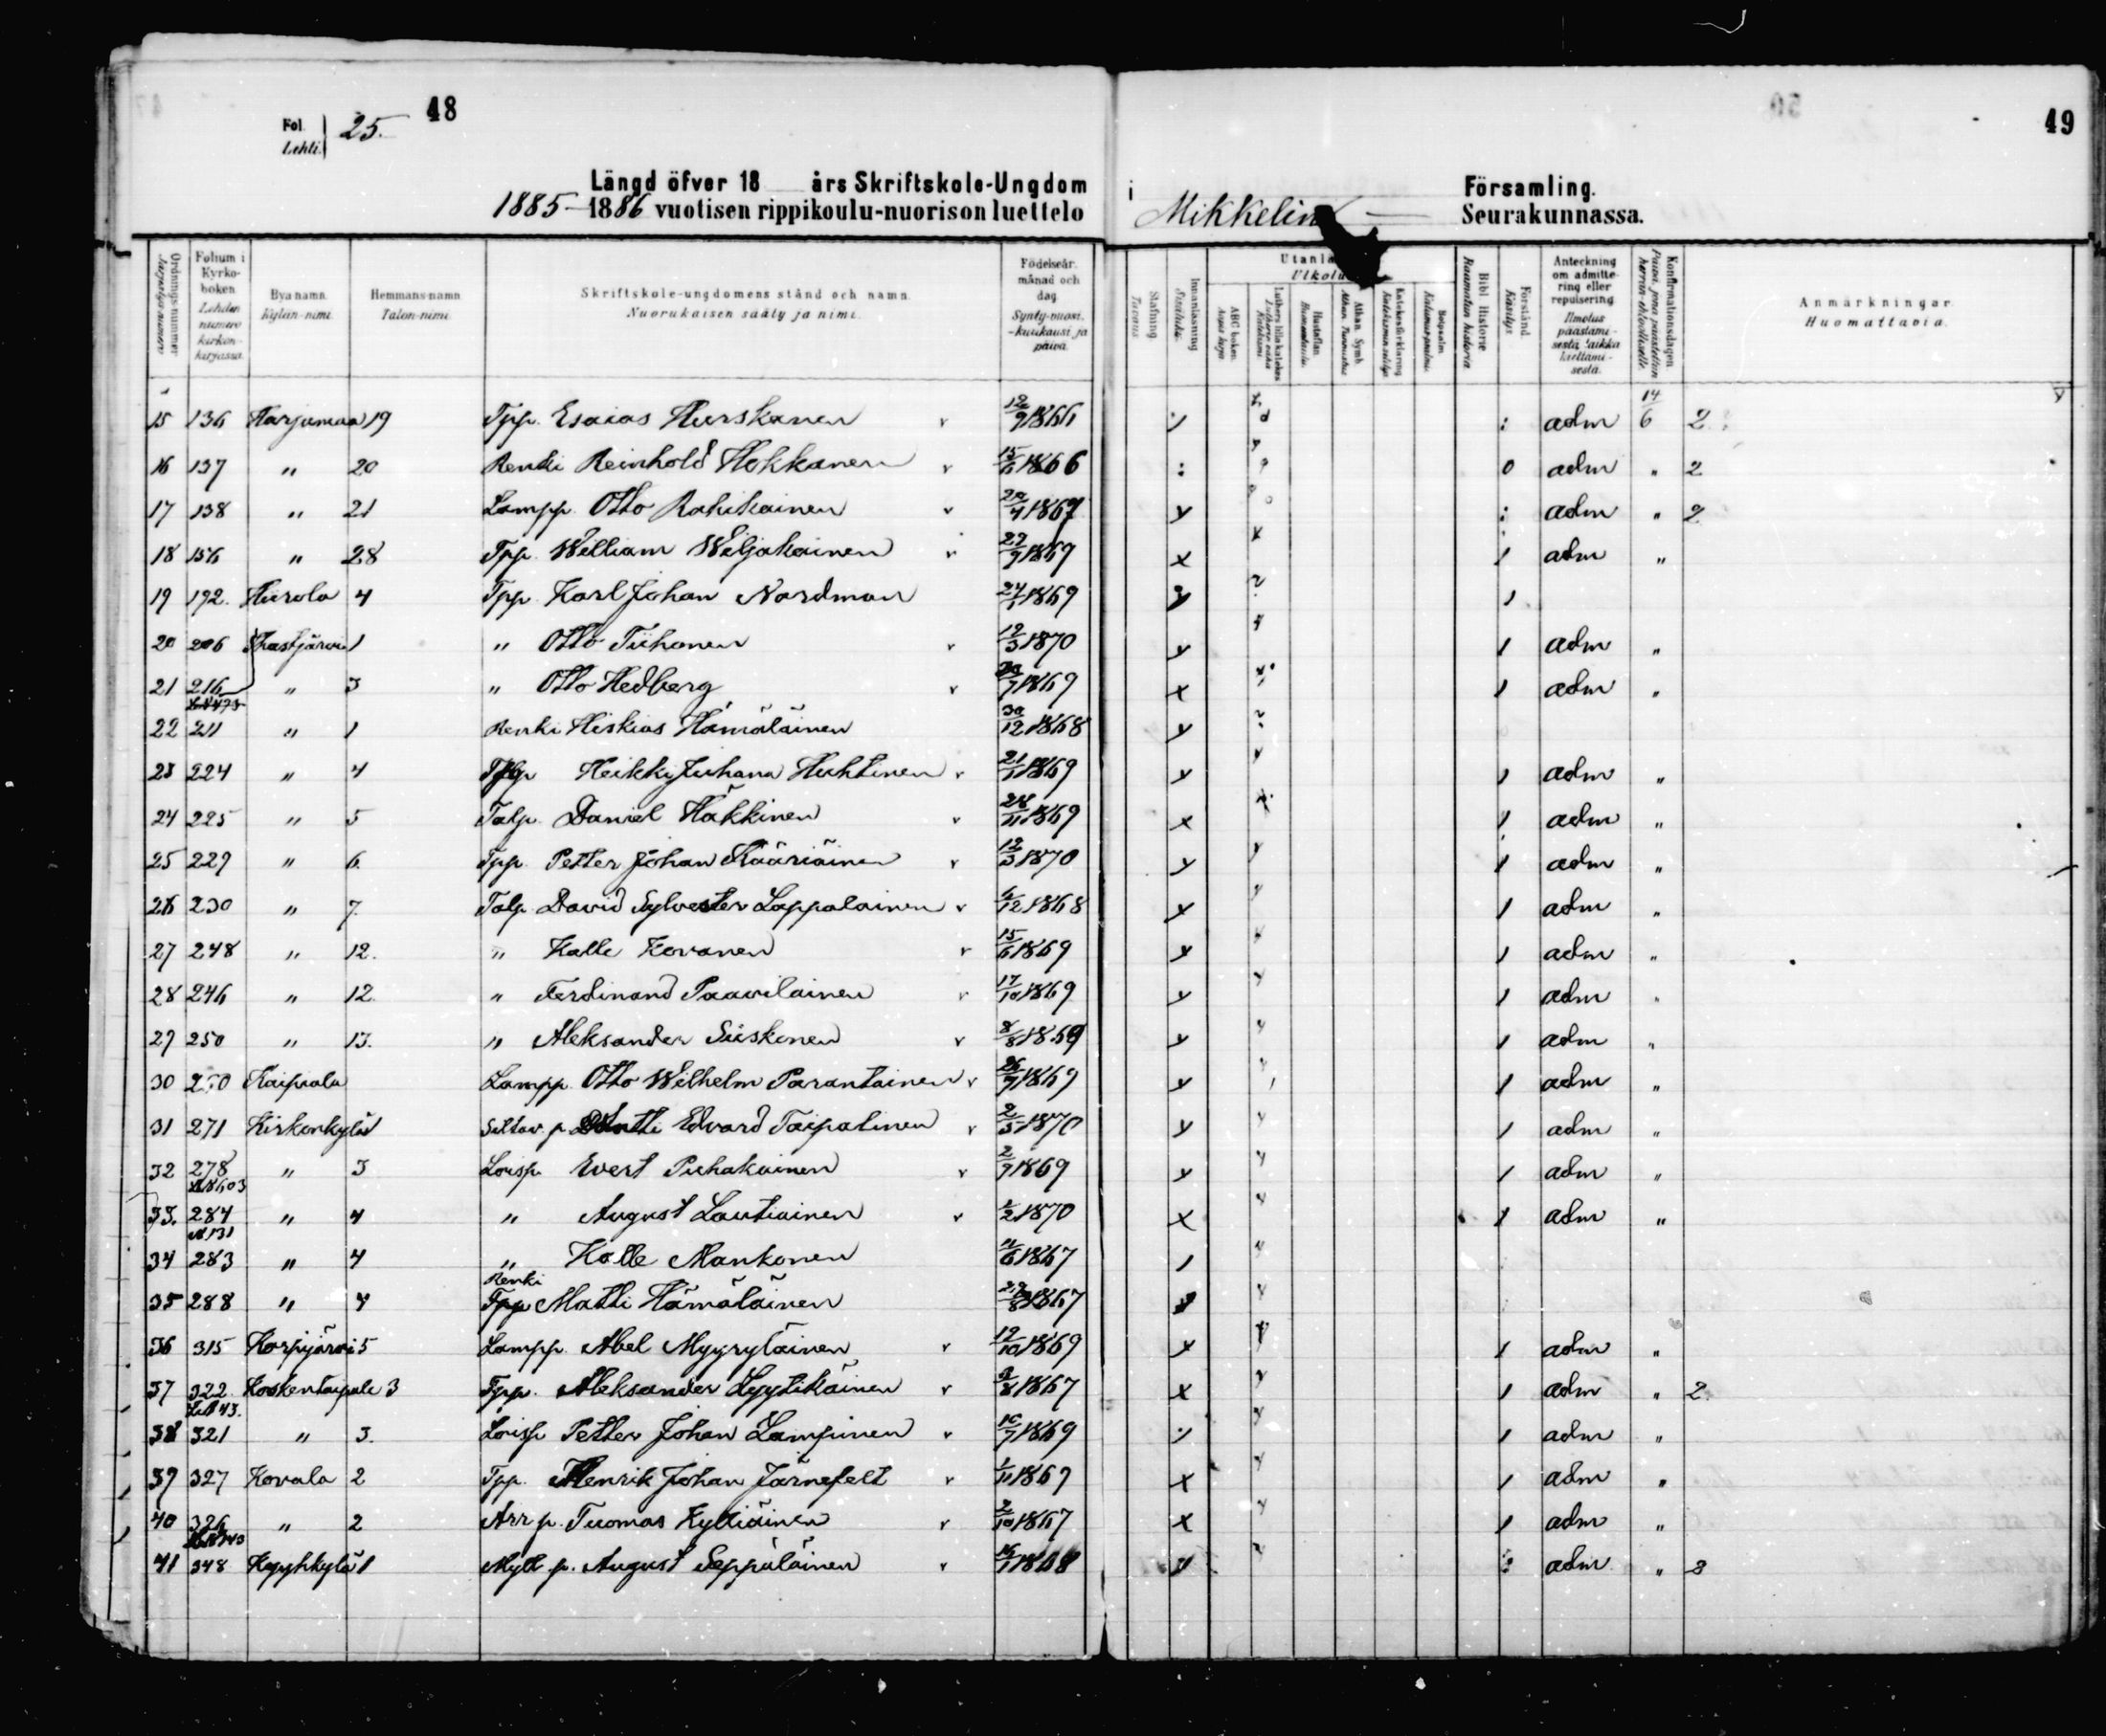 48
Fol. Lehti. 25.
Längd öfver 18 års Skriftskole-Ungdom i Församling.
1885-1886 vuotisen rippikoulu-nuorison luettelo Mikkelin Seurakunnassa.
49
Ordnings-nummer
Folium i Kyrko-boken Lehden numero kirkon-kirjassa.
Bya namn. Kylän-nimi.
Hemmans-namn. Talon-nimi.
Skriftskole-ungdomens stånd och namn. Nuorukaisen sääty ja nimi.
Födelseår, månad och dag. Synty-vuosi, -kuukausi ja päivä.
Stafning Tavaus
Innanläsning Sisäluku
ABC boken.
Luthers lilla katekes
Hustaflan Huoneentaulu
Athan. Symb. Athan. Tunnustus
Katekesförklaring
Botpsalm. Katumuspsalmi.
Bibl. Historie Raamatun historia
Förstånd. Käsitys
Anteckning om admittering eller repulsering
Konfirmationsdagen
Anmärkningar. Huomattavia.
15 136 Harjumaa 19 Tpp. Esaias Hurskanen 12/9 1866 : adm 14/6 2
16 137 " 20 Renki Reinhold Hokkanen 15/6 1866 : 0 adm " 2
17 138 " 21 Lampp. Otto Rahikainen 1867 y : adm " 2
18 156 " 28 Tpp. William Weljakainen 1869 x 1 adm "
19 192. Hiirola 4 Tpp. Karl Johan Nordman 24/1 1869 1
20 206 1 " Otto Tiihonen 12/3 1870 y 1 adm "
21 216 " 3 " Otto Hedberg 1869 x 1 adm "
22 211 " 1 Renki Hiskias Hämäläinen 30/12 1868 y
23 224 " 4 Heikki Juhana Huhtinen 21/1 1869 y 1 adm "
24 225 " 5 Talp. Daniel Häkkinen 28/11 1869 x 1 adm "
25 229 " 6. Tpp. Petter Johan Kääriäinen 12/3 1870 y 1 adm "
26 230 " 7. Talp. David Sylvester Lappalainen 6/12 1868 y 1 adm "
27 248 " 12. " Kalle Kovanen 15/6 1869 y 1 adm "
28 246 " 12. " Ferdinand Paavilainen 17/10 1869 y 1 adm "
29 250 " 13. " Aleksander Siiskonen 8/8 1869 y 1 adm "
30 Kaipiala Lampp. Otto Wilhelm Parantainen 26/9 1869 y 1 adm "
31 271 Kirkonkylä 1 Edvard Taipalinen 2/5 1870 y 1 adm "
32 278 " 3 Loisp. Evert Puhakainen 2/9 1869 y 1 adm "
33. 284 " 4 " August Lautiainen 1870 x 1 adm "
34 283 " 4 " Kalle Mankonen 11/6 1867
35 288 " 4 Renki Matti Hämäläinen 1867
36 315 Korpijärvi 5 Lampp. Abel Myyryläinen 12/10 1869 y 1 adm "
37 322 Koskentaipale 3 Tpp. Aleksander Lyytikäinen 9/8 1867 x 1 adm " 2.
38 321 " 3. Loisp Petter Johan Lampinen 1869 1 adm "
39 327 Kovala 2 Tpp. Henrik Johan Järnefelt 1/11 1869 x 1 adm "
40 326 " 2 Arr p. Tuomas Kylliäinen 2/10 1867 x 1 adm "
41 348 Kyyhkylä 1 Myll. p. August Seppäläinen 1868 adm "